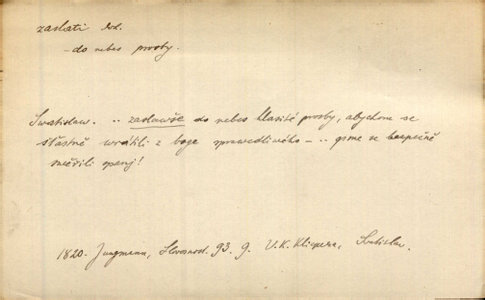 zaslati dok.
- do nebes prosby.
Swatislaw. .. zaslawše do nebes hlasité prosby, abychom se
šťastně wrátili z boje sprawedliwého - .. gsme se bezpečně
měřili
1820. Jungmann, Slovesnost. 93. g. V. K. Klicpera,